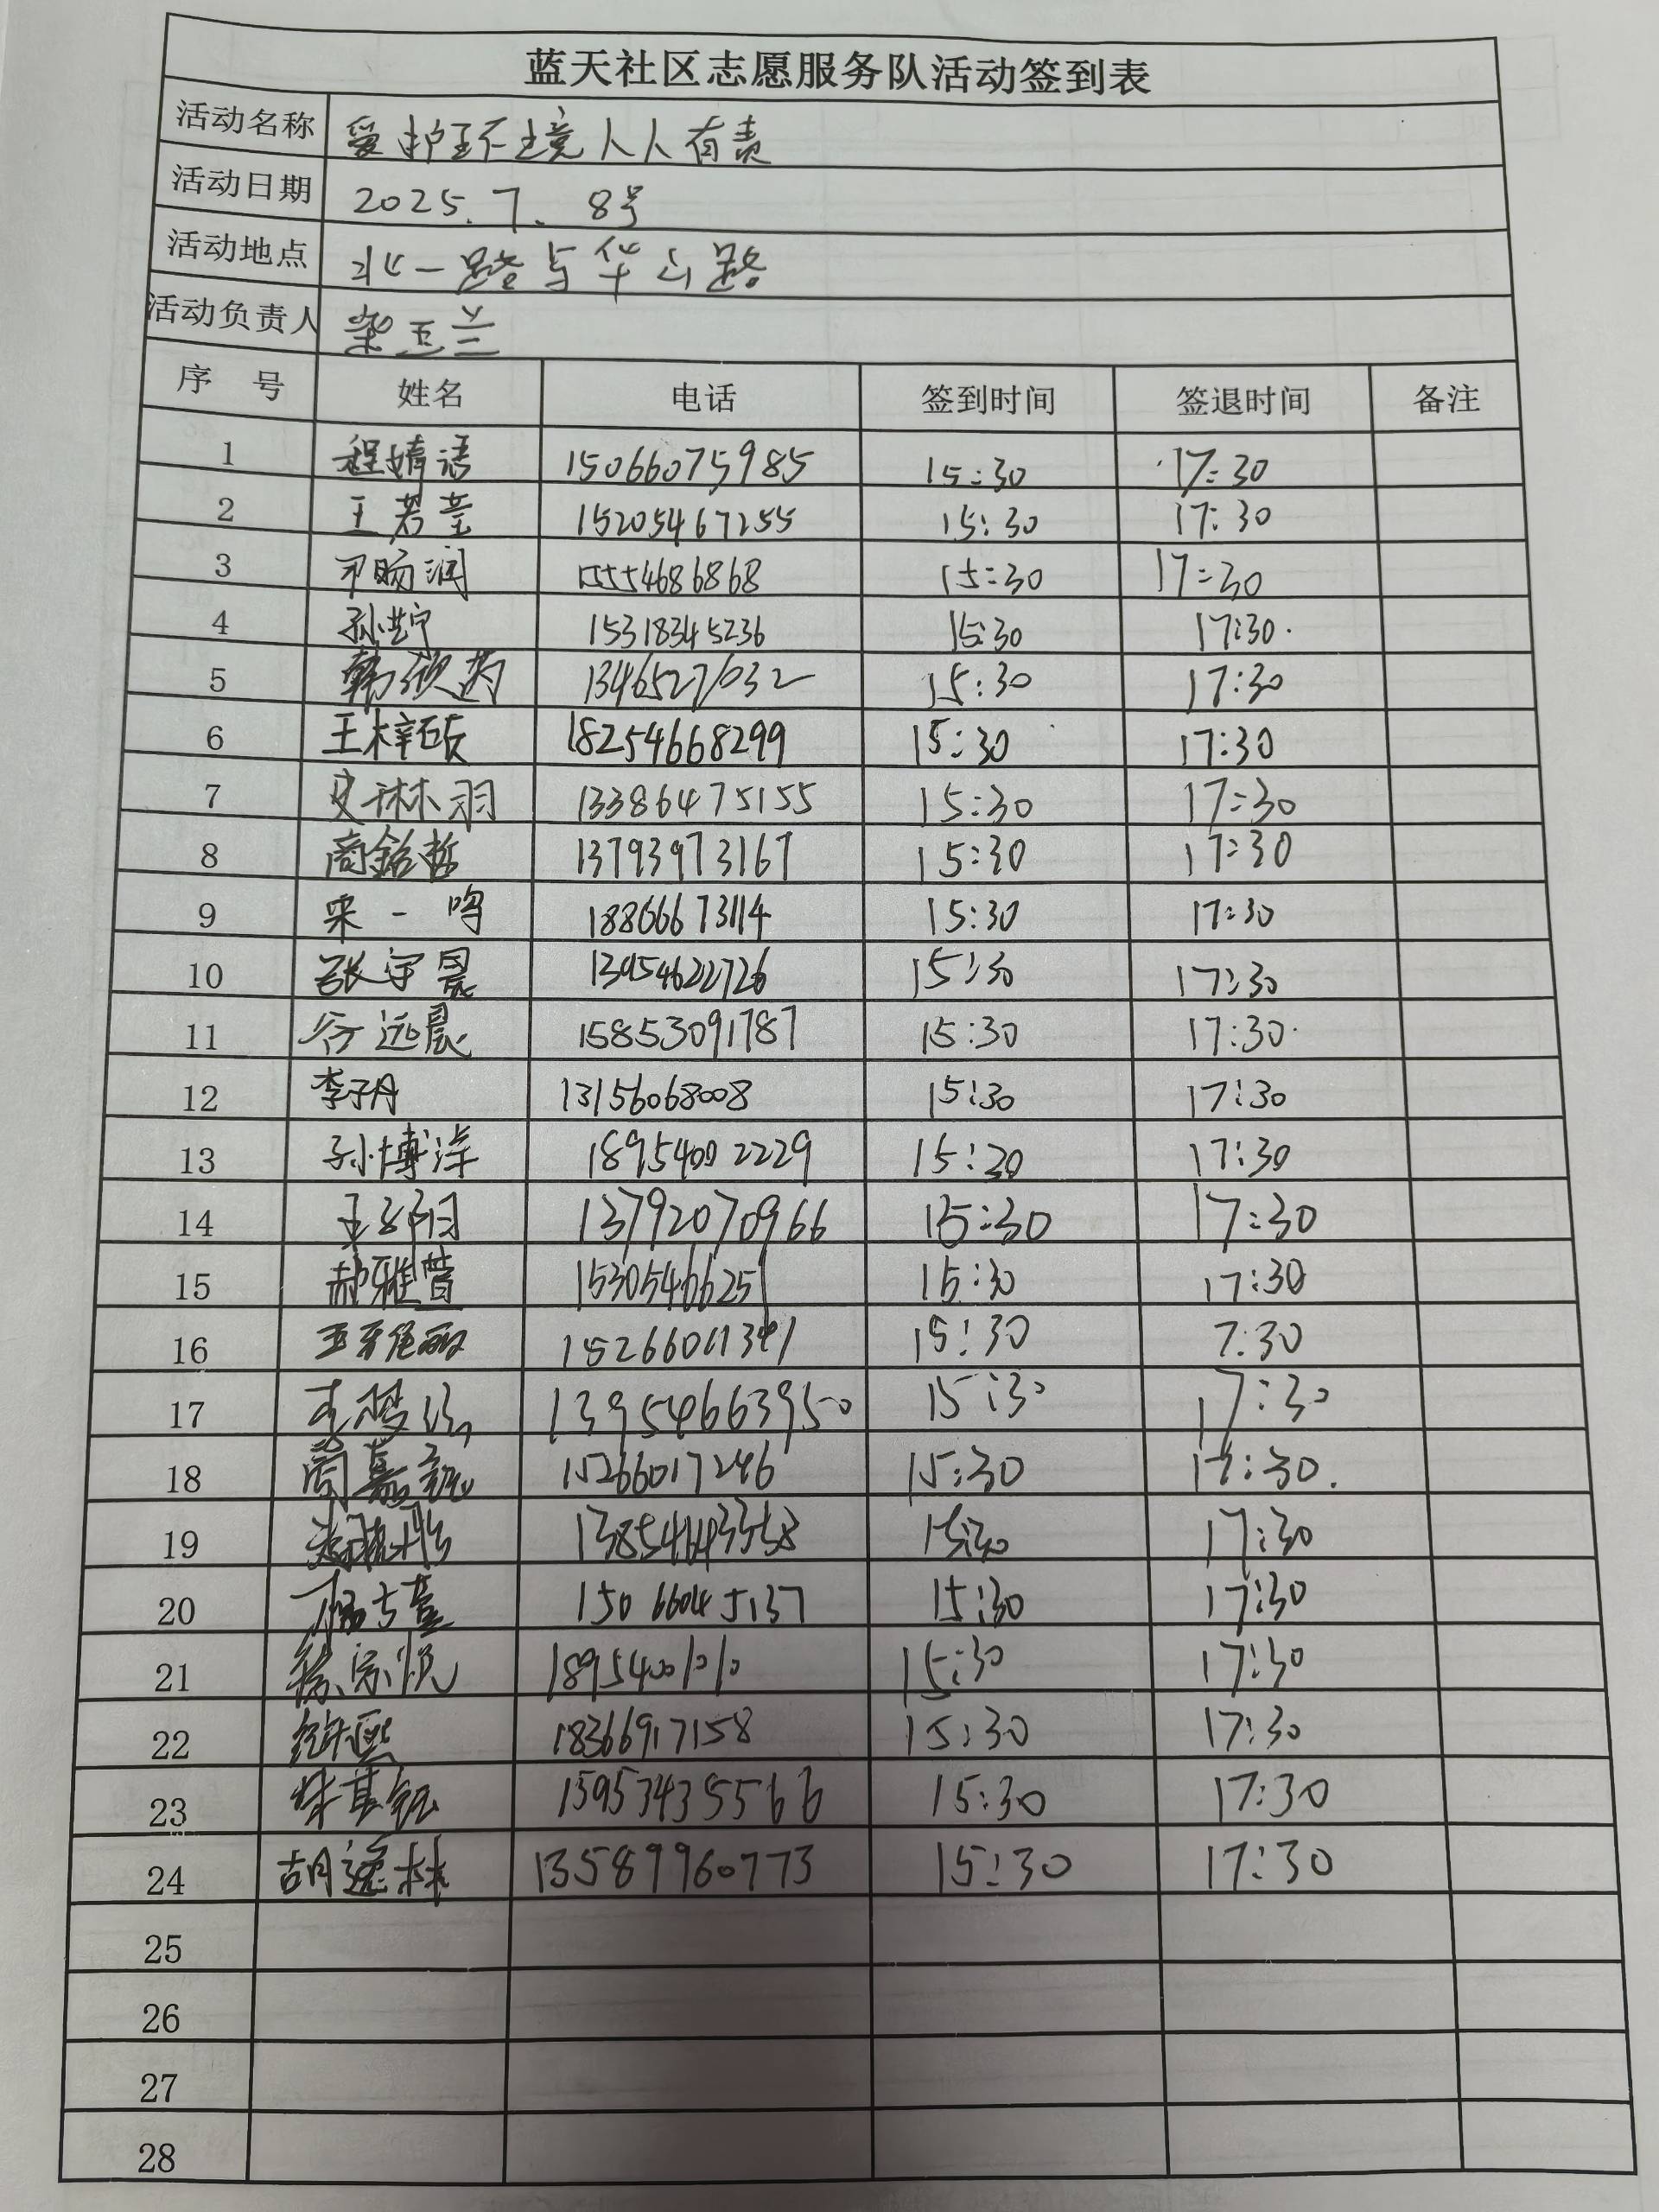 蓝天社区志愿服务队活动签到表
活动名称 爱护环境人人有责
活动日期 2025.7. 8号
活动地点 北一路与华山路
活动负责人 梁玉兰
序 号 姓名 电话 签到时间 签退时间 备注
1 程婧语 15066075985 15:30 17:30
2 王若莹 15205467255 15:30 17:30
3 润 15554686868 15:30 17:30
4 孙 15318345236 15:30 17:30
5 韩欣芮 13465271032 15:30 17:30
6 王梓硕 18254668299 15:30 17:30
7 史琳羽 13386475155 15:30 17:30
8 商铭哲 13793973167 15:30 17:30
9 来一鸣 18866673114 15:30 17:30
10 张宇晨 13954622726 15:30 17:30
11 谷远晨 15853091787 15:30 17:30
12 李子月 13156068008 15:30 17:30
13 孙博洋 18954002229 15:30 17:30
14 王 13792070966 15:30 17:30
15 郝雅萱 15305466251 15:30 17:30
16 15:30 7:30
17 13954663950 15:30 17:30
18 15266017246 15:30 17:30.
19 15:30 17:30
20 15066045137 15:30 17:30
21 徐宗悦 18954001010 15:30 17:30
22 18366917158 15:30 17:30
23 15953435566 15:30 17:30
24 胡逸林 13589960773 15:30 17:30
25
26
27
28